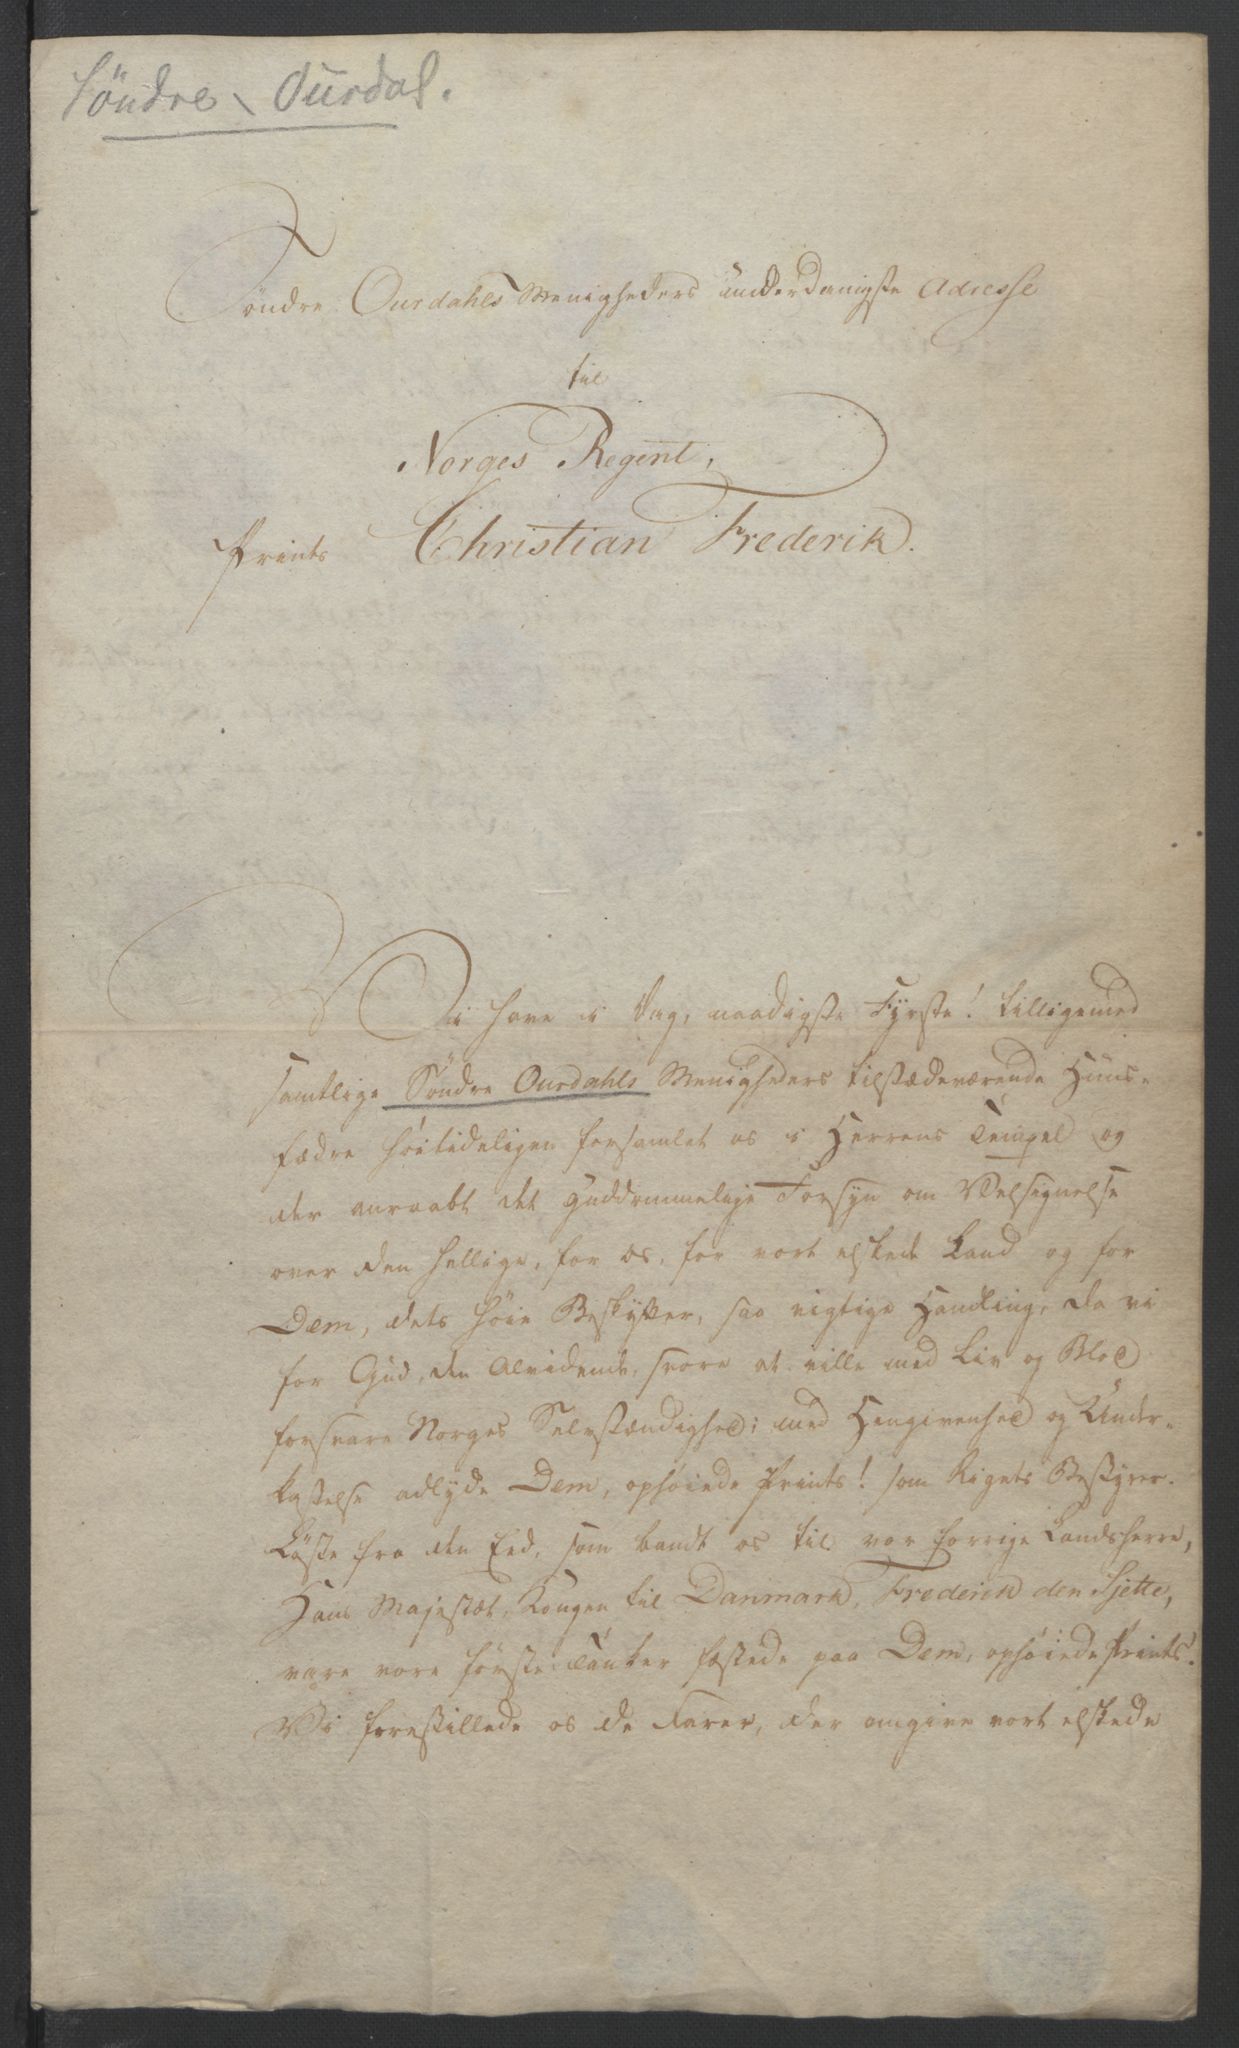 Söndre Ourdal.
Söndre Ourdahls Menigheders underdanigste Adresse
til
Norges Regent,
Prints Christian Frederik.
Vi have i Dag, naadigste Fyrste! tilligemed
samtlige Söndre Ourdahls Menigheders tilstædeværende Huus-
fædre höitideligen forsamlet os i Herrens Tempel og
der anraabt det guddommelige Forsyn om Velsignelse
over den hellige, for os, for vort elskede Land og for
Dem, dets höie Beskytter, saa vigtige Handling, da vi
for Gud, den Alvidende, svore at ville med Liv og Blod
forsvare Norges Selvstændighed; med Hengivenhed og Under-
kastelse adlyde Dem, ophöiede Prints! som Rigets Bestyrer.
Löste fra den Eed, som bandt os til vor forrige Landsherre,
Hans Majestæt, Kongen til Danmark, Frederik den Sjette,
vare vore förste Tanker fæstede paa Dem, ophöiede Prints!
Vi forestillede os de Farer, der omgive vort elskede